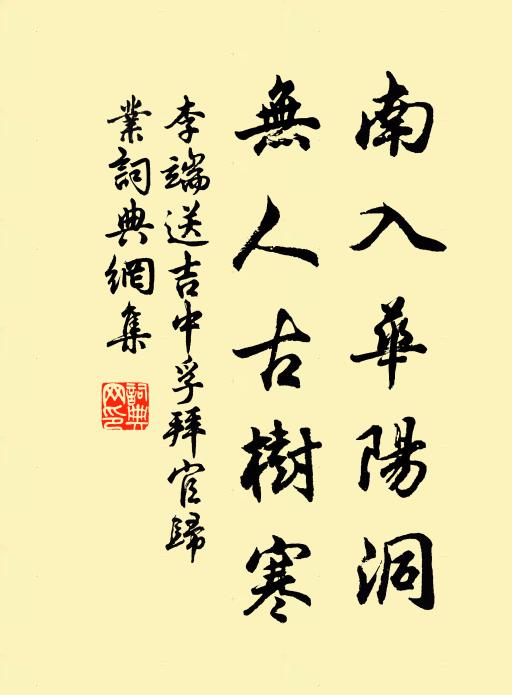 南入華陽洞
無人古樹寒
李端送吉中孚拜官歸
業詞典網集
詞典网印